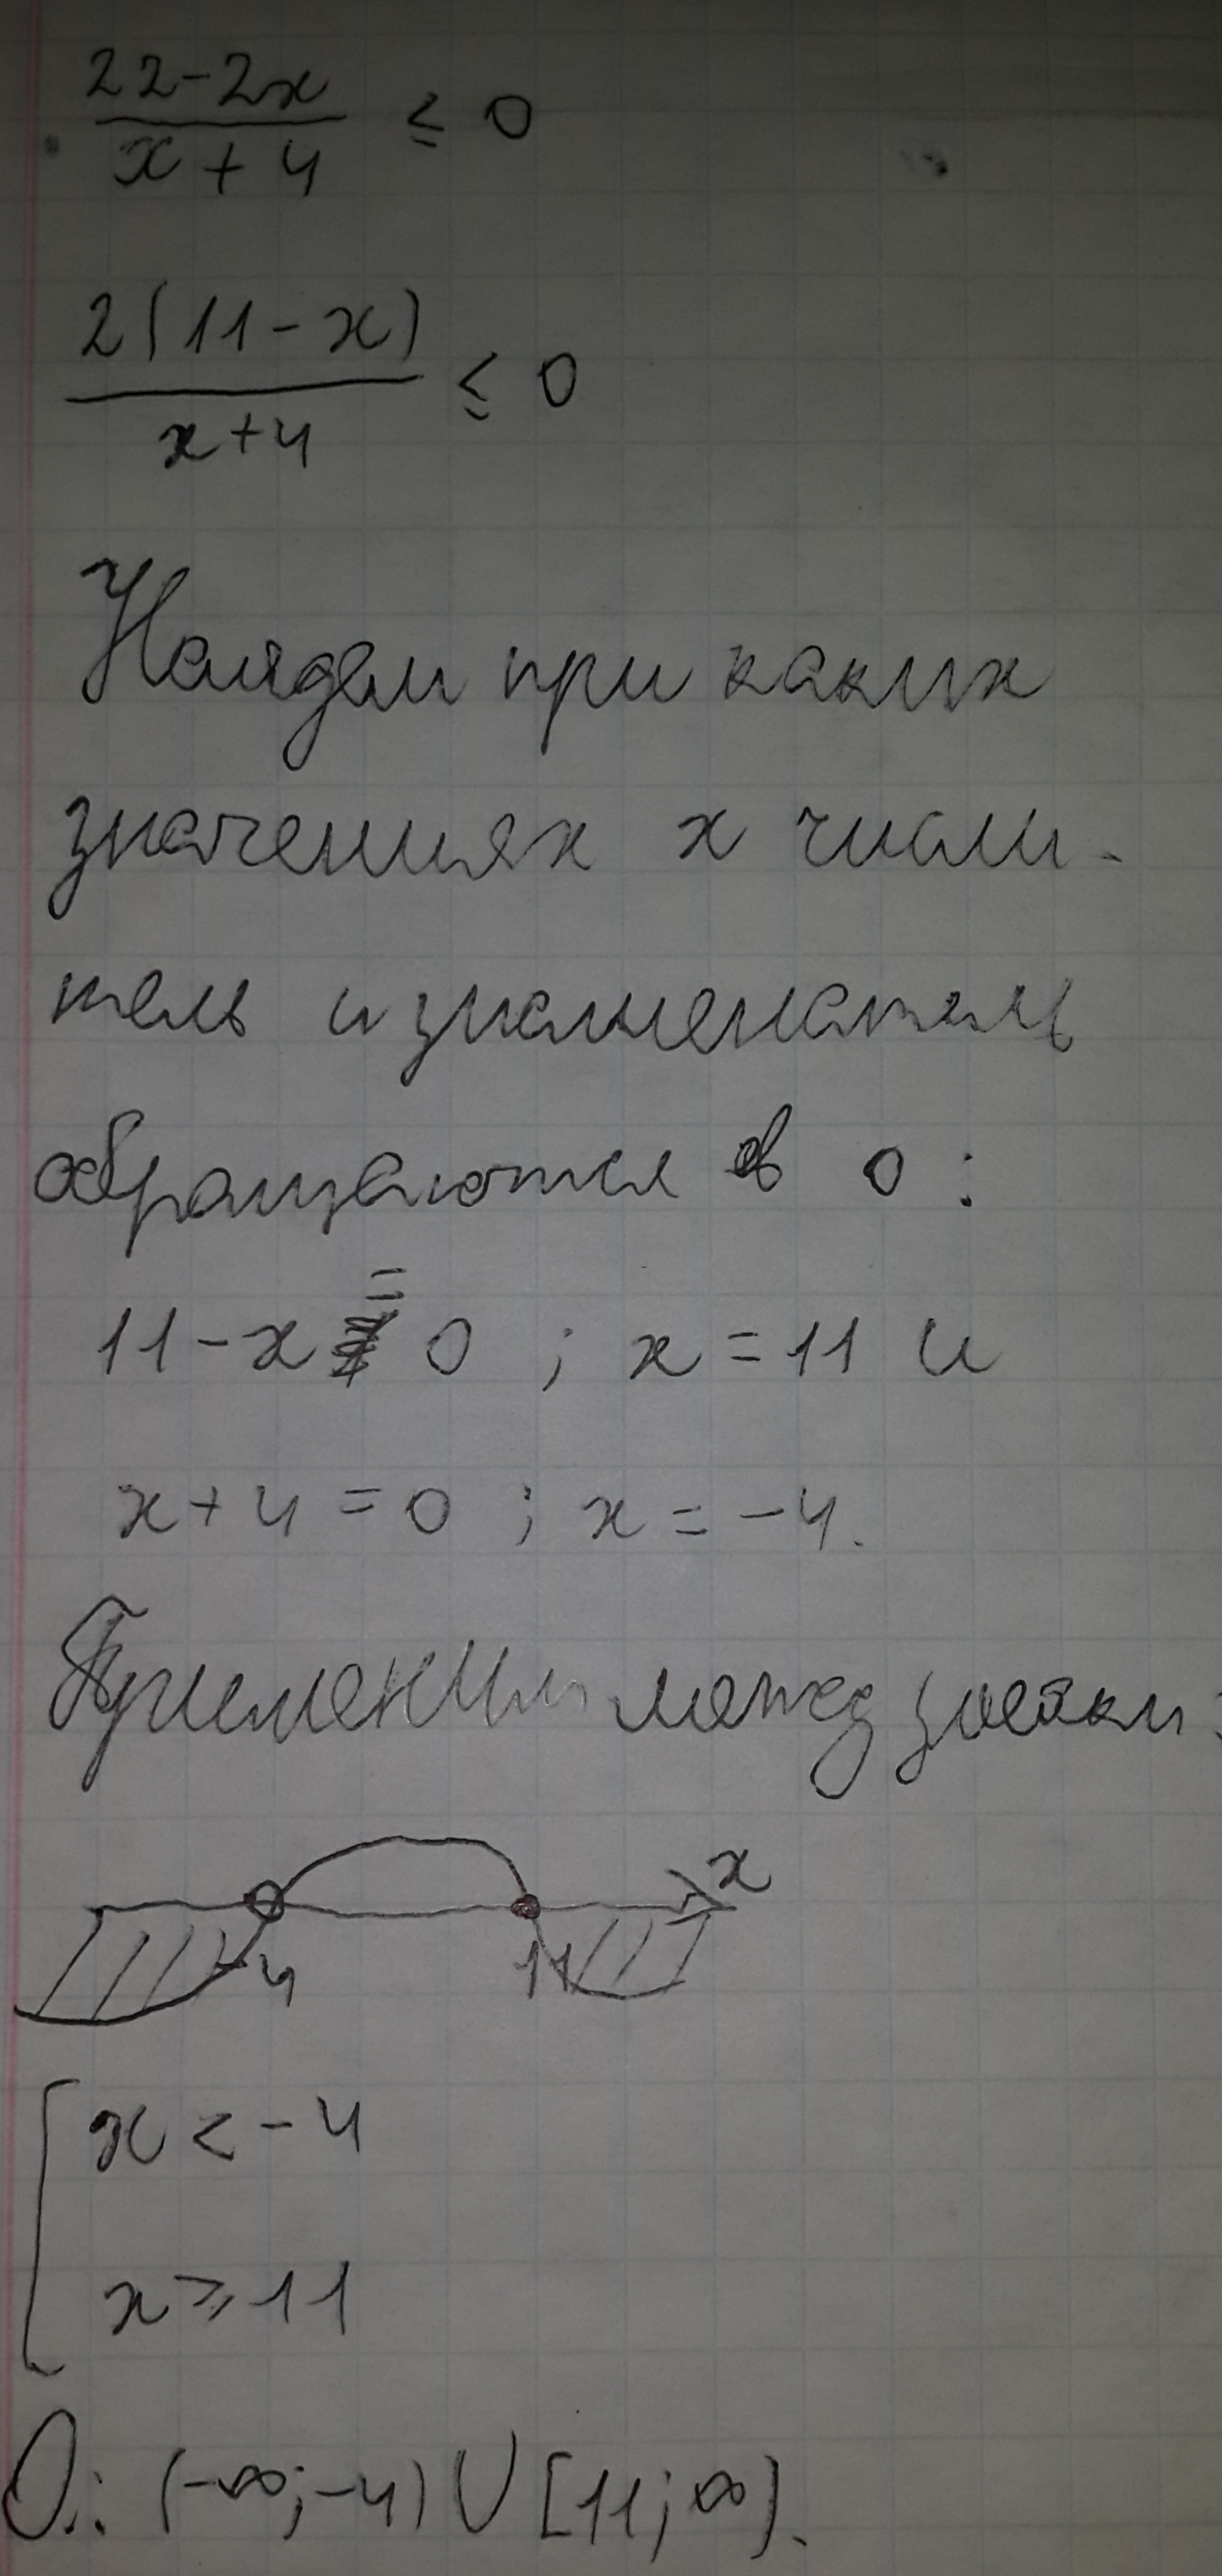 22-2x
x+4
≤ 0
2(11-x)
x+4
≤ 0
Найдем при каких
значениях x числи-
тель и знаменатель
обращаются в 0 :
11-x = 0 ; x = 11 и
x+4 = 0 ; x = -4.
Применим метод
x
-4 11
x < -4
x ≥ 11
О.: (-∞;-4) U [11;∞).